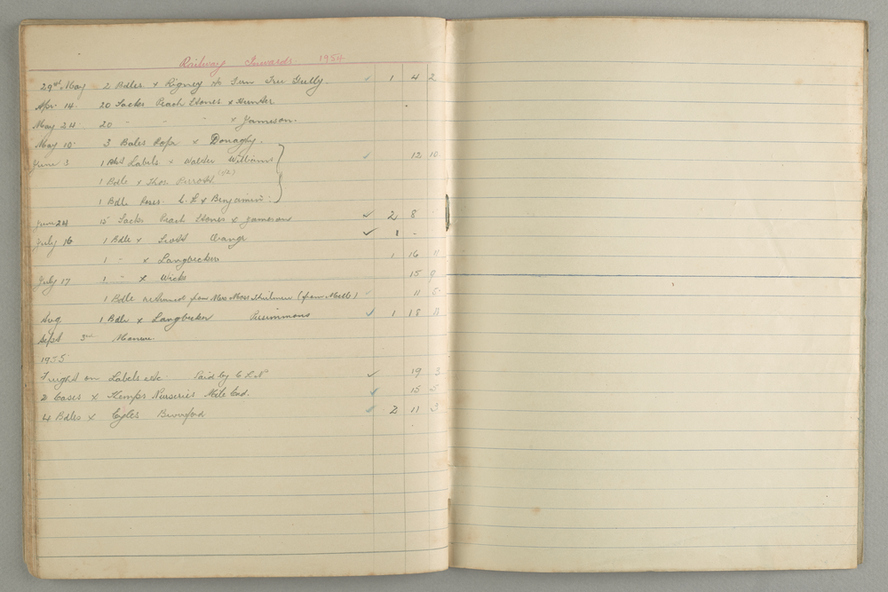 Railway Inwards 1954
29th May 2 Bdles x Rigney Gum Tree Gully ✓ 1 4 2
Apr 14 20 Sacks Peach Stones x Hunter
May 24 20 " " " x Jameson.
May 15 3 Bales x Donaghy.
June 3 1 Labels x Walter Williams ✓ 12 10
1 Bdle x Thos.
1 Bdle Roses x Benjamin
June 24 15 Sacks Peach Stones x Jameson ✓ 2 8 -
July 16 1 Bdle x Scott ✓ 1 -
1 " x Langbecker 1 16 11
July 17 1 " x Wicks 15 9
1 Bdle returned from 11 5
Aug 1 Bdle x Langbecker Persimmons ✓ 1 18
Sept Manure
1955
Freight on Labels etc Paid by C.L.N ✓ 19 3
2 Cases x Kemps Nurseries Mile End. ✓ 15 5
4 Bdles x Eyles ✓ 2 11 3